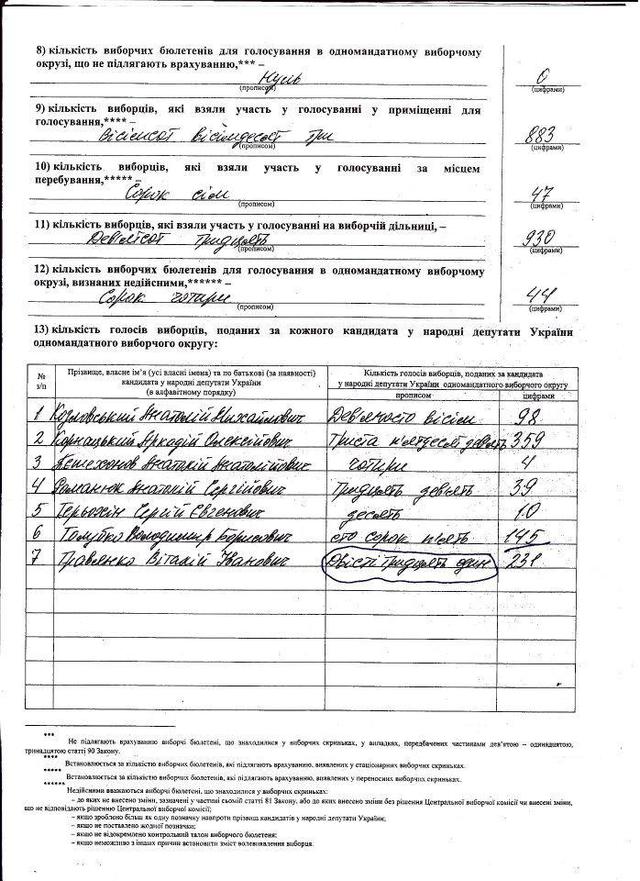 8) кількість виборчих бюлетенів для голосування в одномандатному виборчому
окрузі, що не підлягають врахуванню,*** –
Нуль 0
(прописом) (цифрами)
9) кількість виборців, які взяли участь у голосуванні у приміщенні для
голосування,**** –
Вісімсот вісімдесят три 883
(прописом) (цифрами)
10) кількість виборців, які взяли участь у голосуванні за місцем
перебування,***** –
Сорок сім 47
(прописом) (цифрами)
11) кількість виборців, які взяли участь у голосуванні на виборчій дільниці, –
Дев'ятсот тридцять 930
(прописом) (цифрами)
12) кількість виборчих бюлетенів для голосування в одномандатному виборчому
окрузі, визнаних недійсними,****** –
Сорок чотири 44
(прописом) (цифрами)
13) кількість голосів виборців, поданих за кожного кандидата у народні депутати України
одномандатного виборчого округу:
№ з/п
Прізвище, власне ім'я (усі власні імена) та по батькові (за наявності)
кандидата у народні депутати України
(в алфавітному порядку)
Кількість голосів виборців, поданих за кандидата
у народні депутати України одномандатного виборчого округу
прописом цифрами
1 Козловський Анатолій Михайлович Дев'яносто вісім 98
2 Корнацький Аркадій Олексійович Триста п'ятдесят дев'ять 359
3 Анатолій Анатолійович чотири 4
4 Романюк Анатолій Сергійович Тридцять дев'ять 39
5 Терьохін Сергій Євгенович десять 10
6 Голубко Володимир Борисович сто сорок п'ять 145
7 Травянко Віталій Іванович Двісті тридцять один 231
***
Не підлягають врахуванню виборчі бюлетені, що знаходилися у виборчих скриньках, у випадках, передбачених частинами дев'ятою – одинадцятою,
тринадцятою статті 90 Закону.
****
Встановлюється за кількістю виборчих бюлетенів, які підлягають врахуванню, виявлених у стаціонарних виборчих скриньках.
*****
Встановлюється за кількістю виборчих бюлетенів, які підлягають врахуванню, виявлених у переносних виборчих скриньках.
******
Недійсними вважаються виборчі бюлетені, що знаходилися у виборчих скриньках:
– до яких не внесено зміни, зазначені у частині сьомій статті 81 Закону, або до яких внесено зміни без рішення Центральної виборчої комісії чи внесені зміни,
що не відповідають рішенню Центральної виборчої комісії;
– якщо зроблено більш як одну позначку навпроти прізвищ кандидатів у народні депутати України;
– якщо не поставлено жодної позначки;
– якщо не відокремлено контрольний талон виборчого бюлетеня;
– якщо неможливо з інших причин встановити зміст волевиявлення виборця.